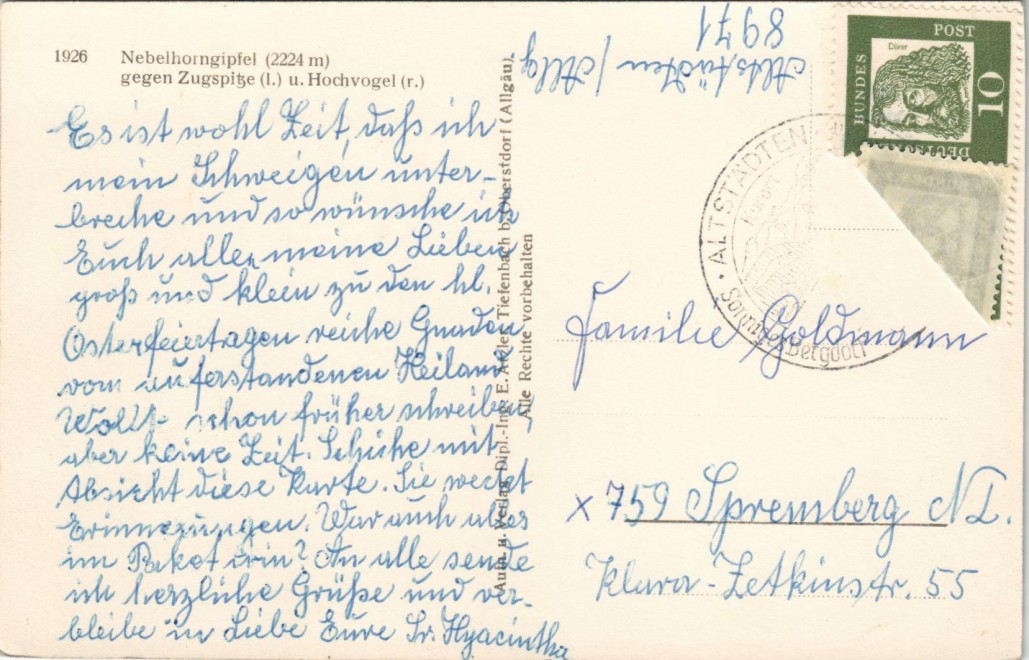 1926 Nebelhorngipfel (2224 m)
gegen Zugspitze (l.) u. Hochvogel (r.)
Es ist wohl Zeit, daß ich
mein Schweigen unter-
breche und so wünsche ich
Euch allen meine Lieben
groß und klein zu den hl.
Osterfeiertagen reiche Gnaden
vom auferstandenen Heiland
Wollt schon früher schreiben,
aber keine Zeit. Schicke mit
Absicht diese Karte. Sie weckt
Erinnerungen. War auch alles
im Paket drin? An alle sende
ich herzliche Grüße und ver-
bleibe in Liebe Eure Sr. Hyacintha
Aufn. u. Verlag Dipl.-Ing. E. Tiefenbach b. Oberstdorf (Allgäu)
Alle Rechte vorbehalten
8971
Altstädten / Allg
DEUTSCHE
BUNDES
POST
Dürer
10
ALTSTÄDTEN
Sonnthofen
Familie Goldmann
x 759 Spremberg NL.
Klara-Zetkinstr. 55